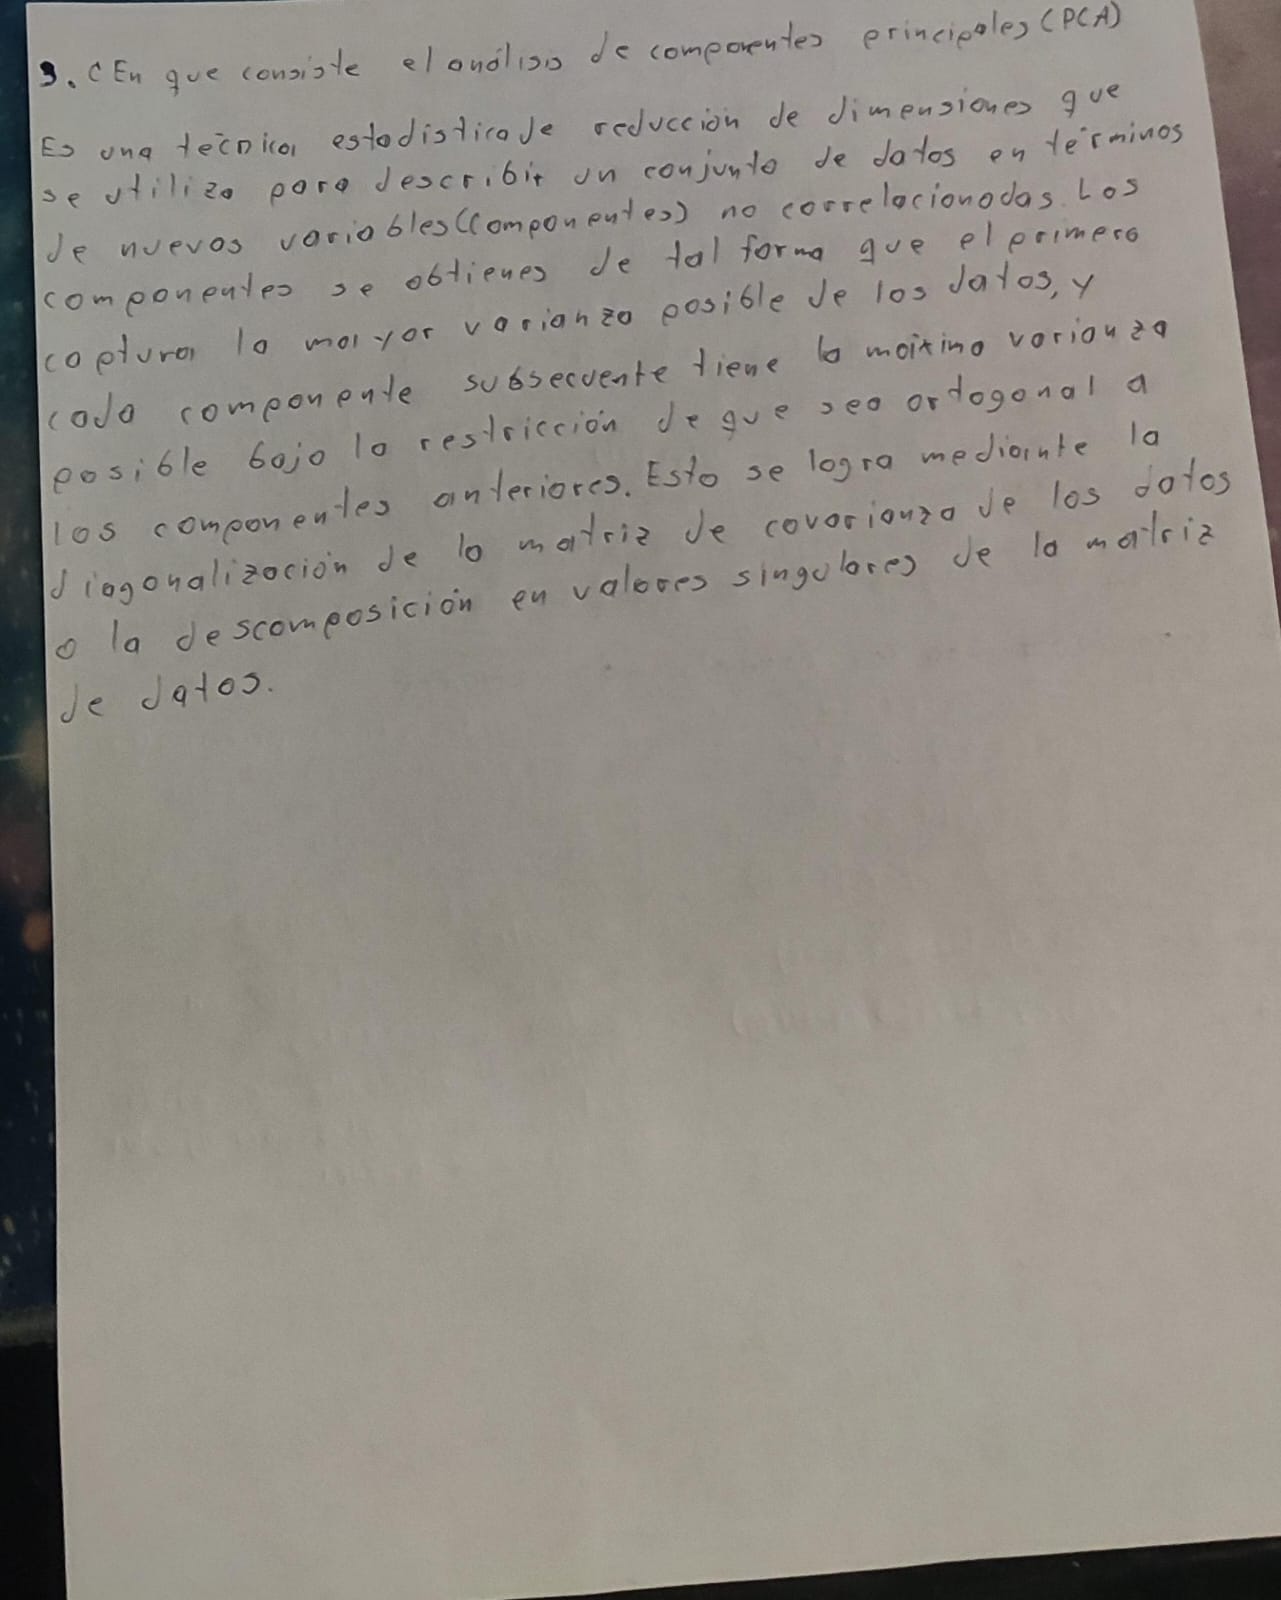 3. ¿En que consiste el análisis de componentes principales (PCA)
Es una técnica estadistica de reducción de dimensiones que
se utiliza para describir un conjunto de datos en términos
de nuevos variables (componentes) no correlacionadas. Los
componentes se obtienes de tal forma que el primero
captura la mayor varianza posible de los datos, y
cada componente subsecuente tiene la máximo varianza
posible bajo la restricción de que sea ortogonal a
los componentes anteriores. Esto se logra mediante la
diagonalización de la matriz de covarianza de los datos
o la descomposición en valores singulares de la matriz
de datos.